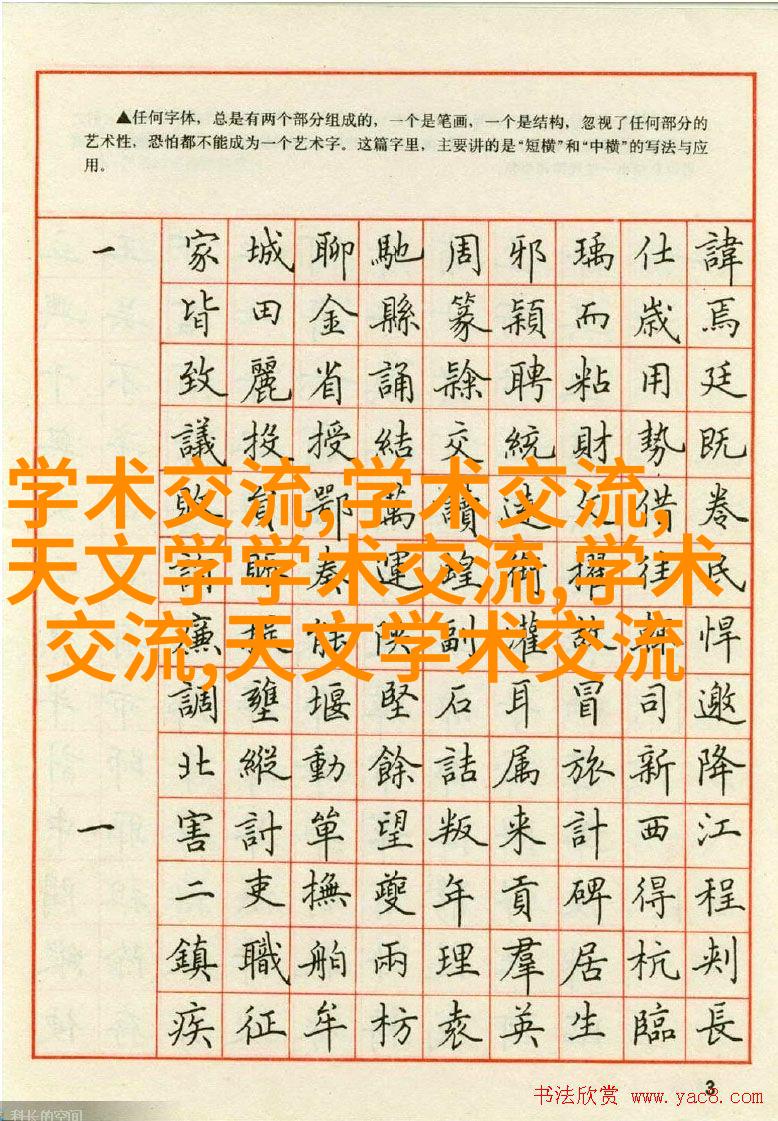 ▲任何字体，总是有两个部分组成的，一个是笔画，一个是结构，忽视了任何部分的
艺术性，恐怕都不能成为一个艺术字。这篇字里，主要讲的是“短横”和“中横”的写法与应
用。
一 家城聊馳周邪瑀仕諱
皆田金縣篆穎而歲焉
致麗省誦隸聘粘用廷
議投授結交統財勢既
学术交流,学术交流,
天文学学术交流,学术
交流,天文学术交流
敗貟鄂萬讀造欠借卷
奏運蝗術擢往民
廉能陝副灌故悍
調壅堰堅石耳冒司邀
北縱動餘詰属旅新降
一 害討單望叛来計西江
二吏撫夔年貢碑得程
鎮職舶兩理羣居杭剌
疾征牟枋袁英生臨長
3
书法欣赏 www.yac8.com
科长的空间